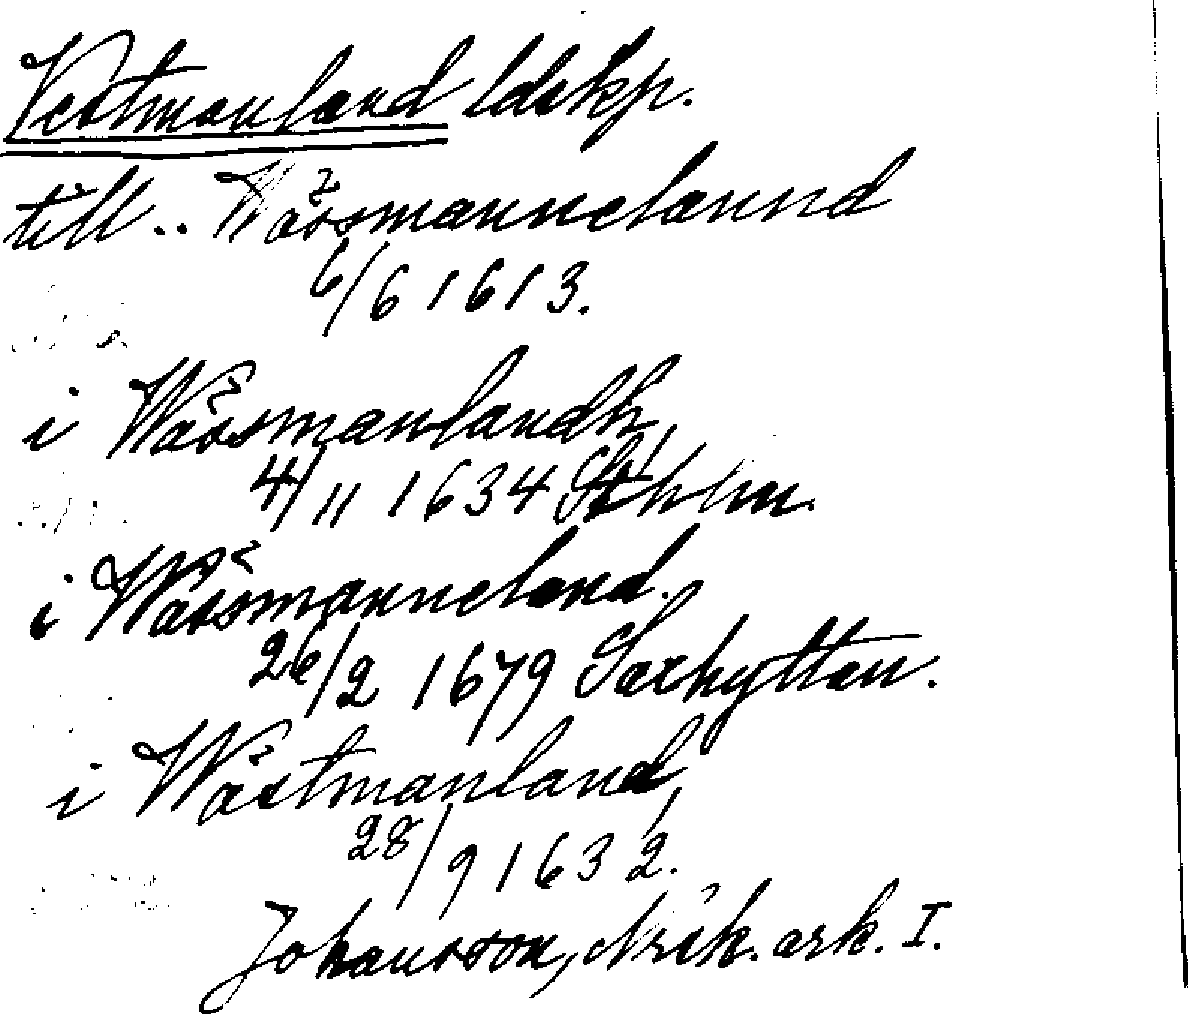 Vestmanland ldskp.
till .. Wäsmannelannd
6/6 1613.
i Wäsmanlandh,
4/11 1634 Sthlm.
i Wäsmanneland.
26/2 1679 Saxhyttan.
i Wästmanland,
28/9 1632.
Johansson, Nrik. ark. I.